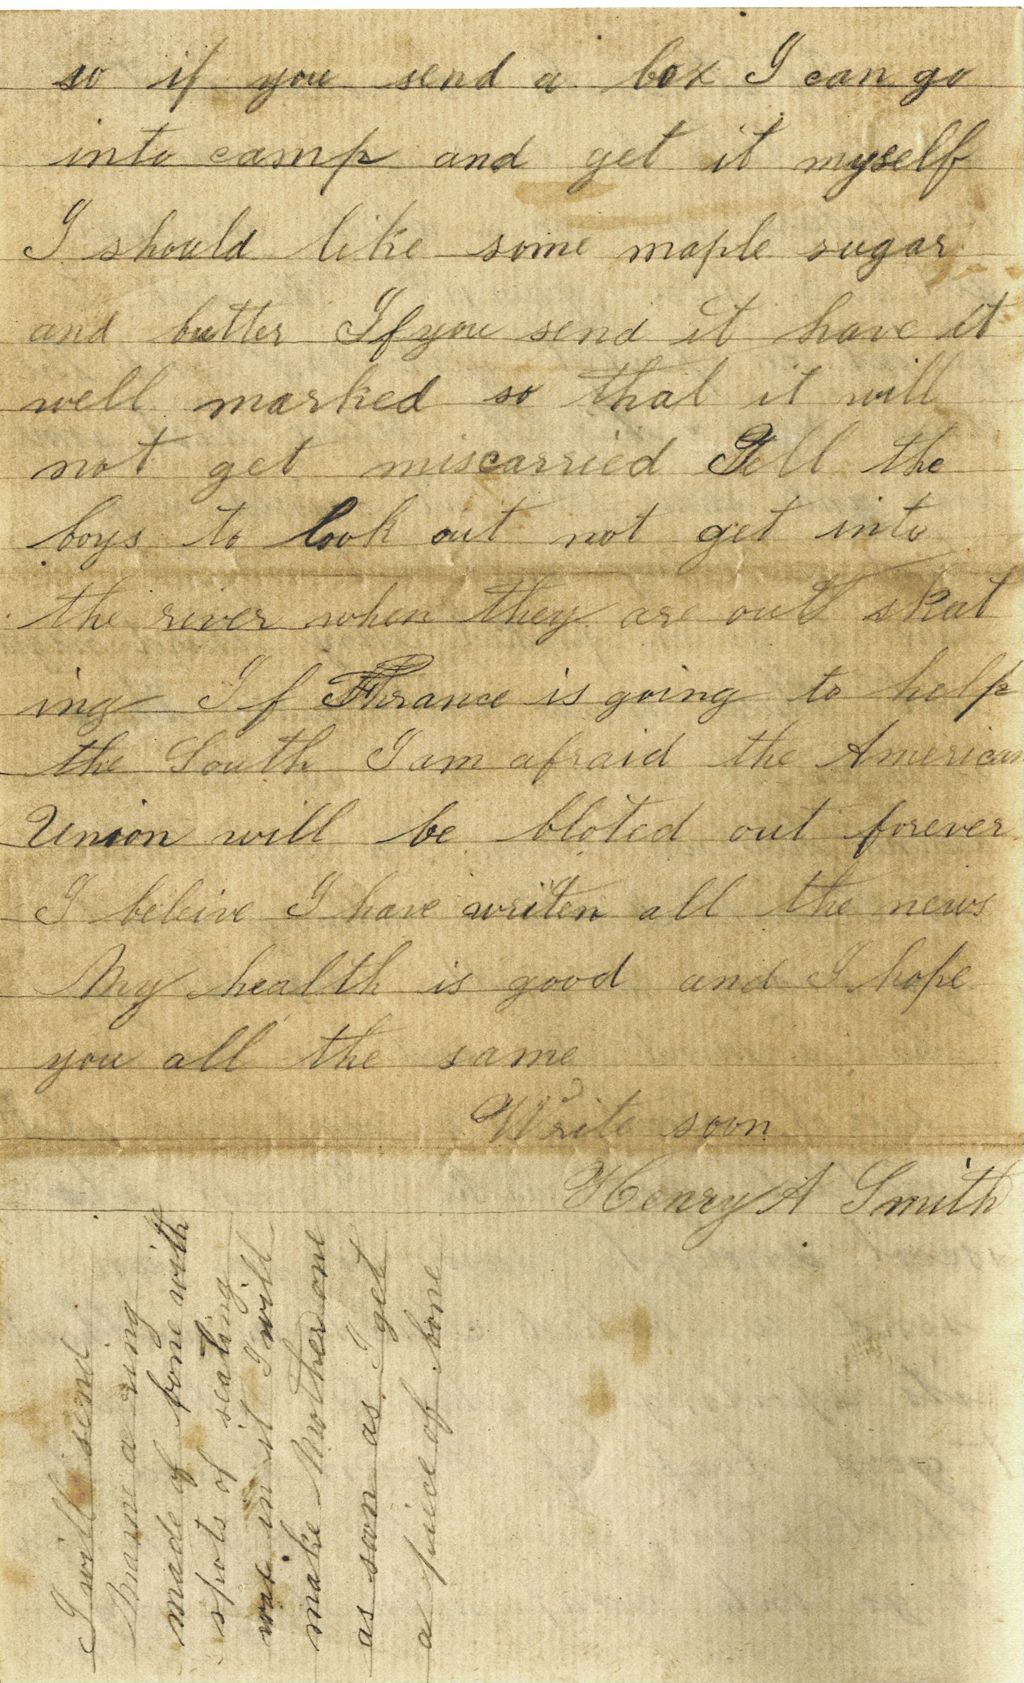 so if you send a box I can go
into camp and get it myself
I should like some maple sugar
and butter If you send it have it
well marked so that it will
not get miscarried Tell the
boys to look out not get into
the river when they are out skat
ing If France is going to help
the South I am afraid the American
Union will be bloted out forever
I beleive I have writen all the news
My health is good and I hope
you all the same
Write soon
Henry A Smith
I will send
a ring
made of bone with
spots of sealing
wax in it I will
make Mother one
as soon as I get
a piece of bone